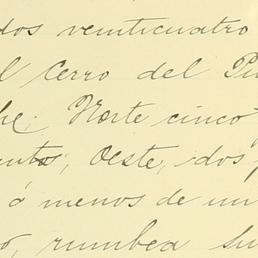 dos veinticuatro
el Cerro del Pu
he; Norte cinco
unto; Oeste, dos
ó menos de un
o, rumbea su